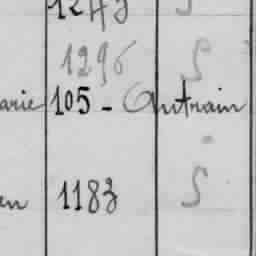 1243 S
1296 S
arie 105 - Antrain
en 1183 S